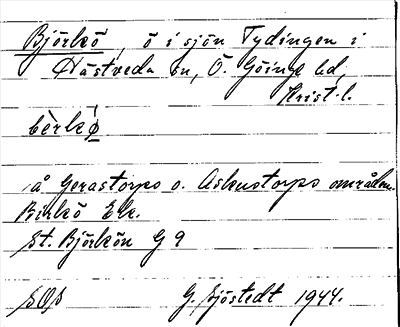 Björkö, ö i sjön Tydingen i
Nästveda sn, Ö. Göinge hd,
Krist. l.
bèrkø
å Gerastorps o. Askustorps områden.
Birkö Ek.
St. Björkön G 9
SOS
G. Sjöstedt 1944.